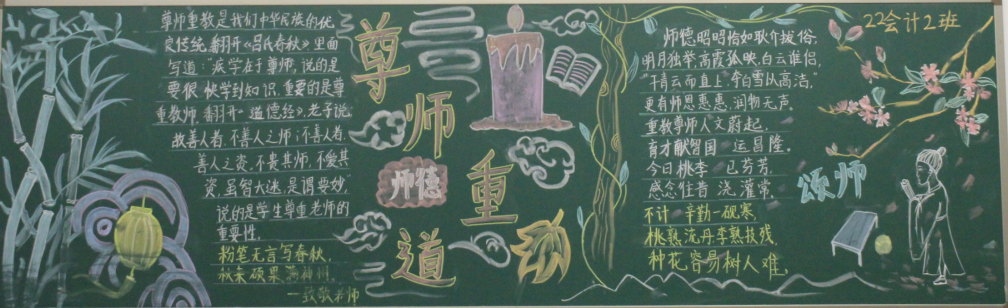 尊师重教是我们中华民族的优
良传统,翻开《吕氏春秋》里面
写道:"疾学在于尊师",说的是
要很快学到知识,重要的是尊
重教师,翻开《道德经》,老子说,
故善人者,不善人之师;不善人者,
善人之资,不贵其师,不爱其
资,虽智大迷,是谓要妙,
说的是学生尊重老师的
重要性.
粉笔无言写春秋,
秋来硕果满神州.
—致敬老师
尊师重道
师德
师德昭昭恰如耿介拔俗,
明月独举,高霞孤映,白云谁侣,
"干青云而直上,争白雪以高洁."
更有师恩惠惠,润物无声,
重教尊师人文蔚起,
育才献智国运昌隆。
今日桃李已芬芳,
感念往昔浇灌常,
不计辛勤一砚寒,
桃熟流丹李熟技残,
种花容易树人难。
22会计2班
颂师